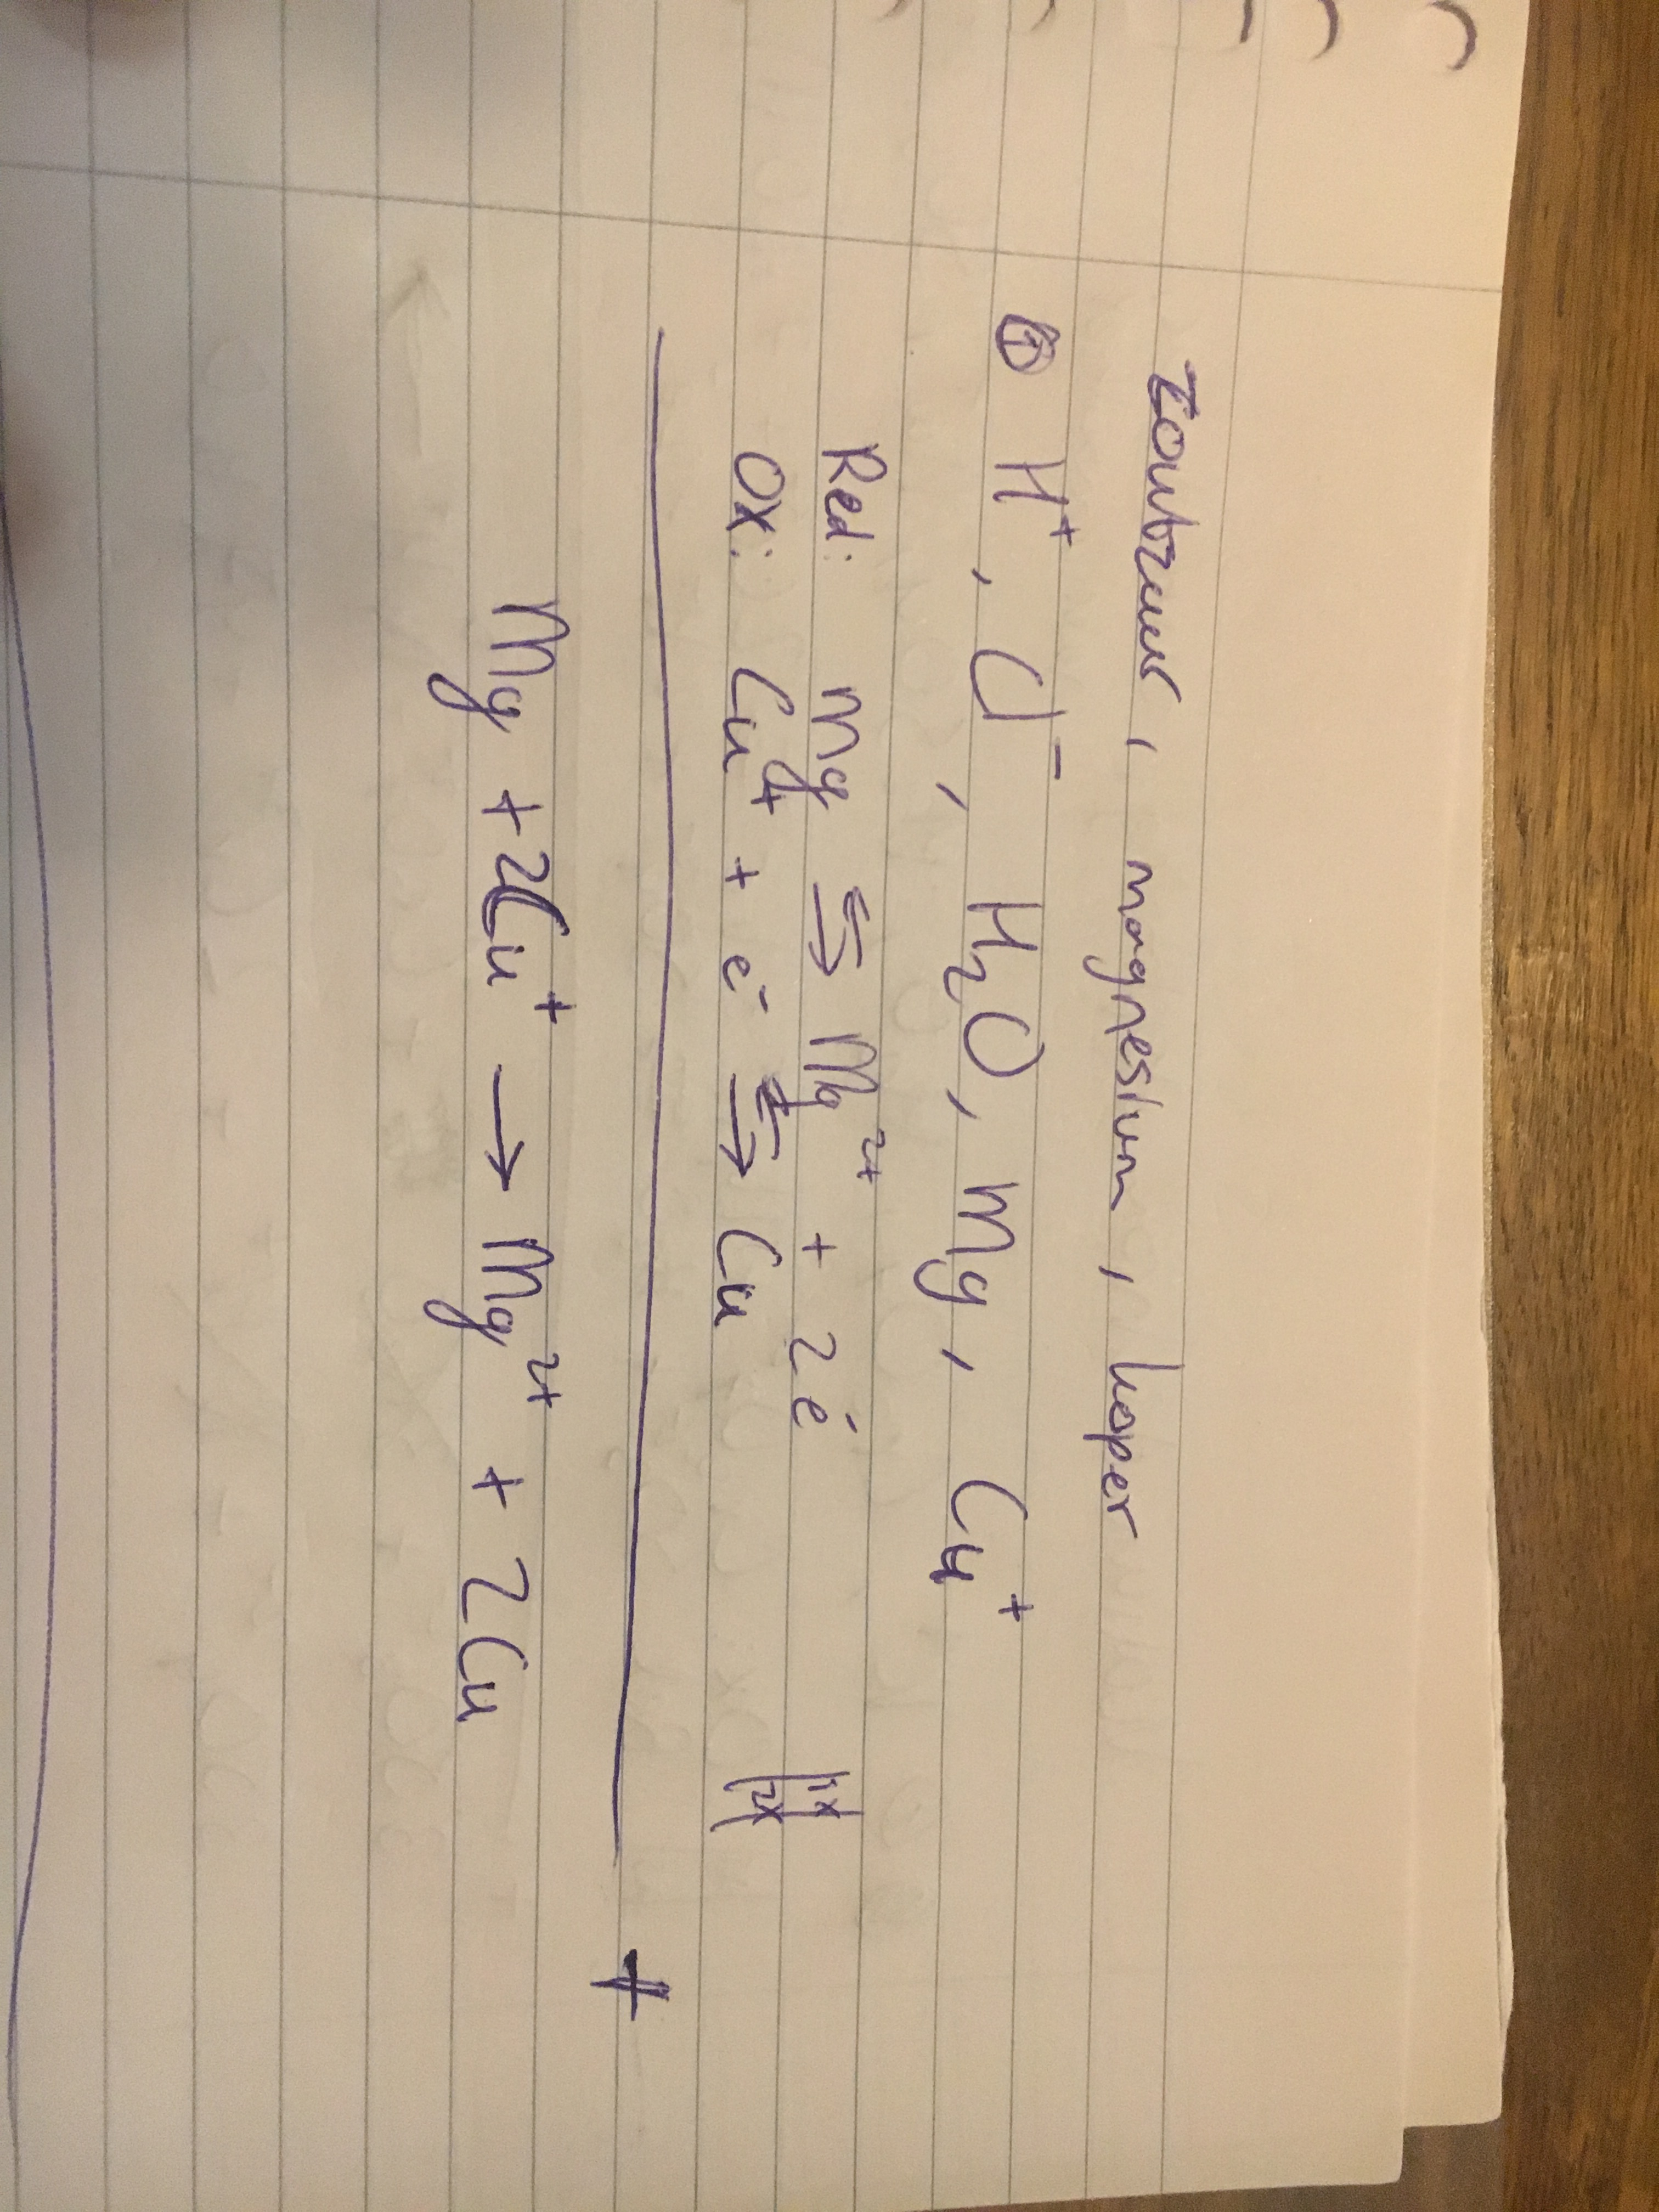 Zoutzuur, magnesium, koper
① H⁺, Cl⁻, H₂O, Mg, Cu⁺
Red: Mg ⇌ Mg²⁺ + 2e⁻ |1x|
Ox: Cu⁺ + e⁻ ⇌ Cu |2x|
+
Mg + 2Cu⁺ → Mg²⁺ + 2Cu